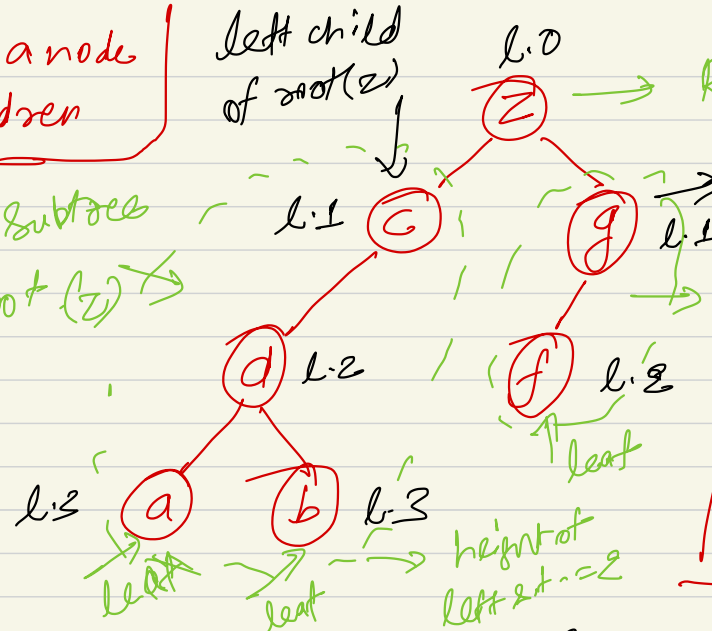 a node
dren
left child
of root(z)
l:0
z
subtree
ot (z)
l:1
c
g
l:1
d
l:2
f
l:2
leaf
l:3
a
b
l:3
leaf
leaf
height of
left s.t. = 2